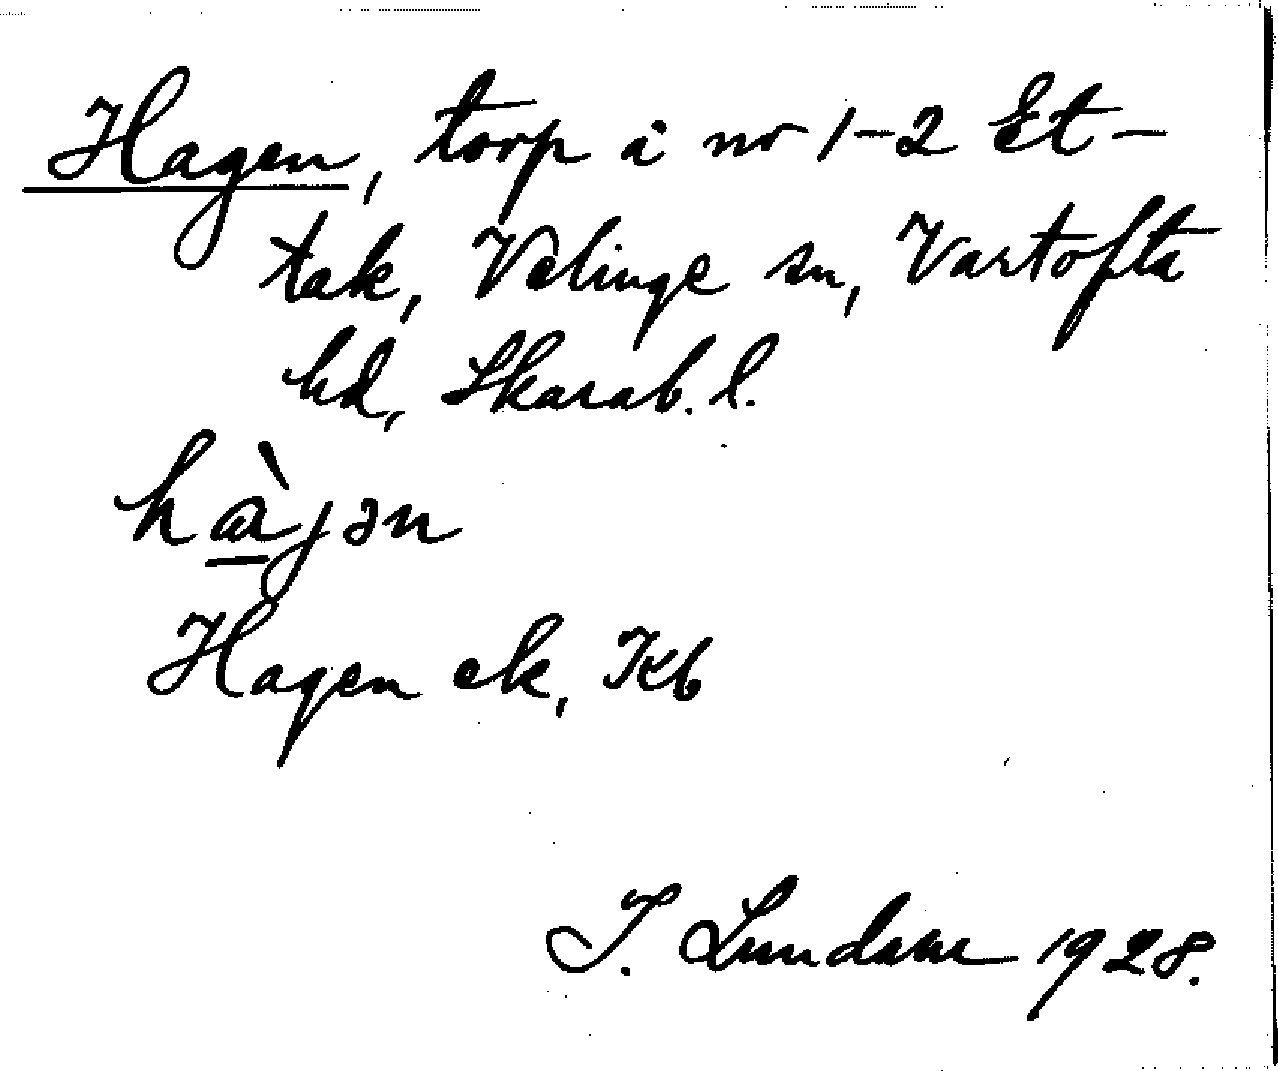 Hagen, torp å nr 1-2 Et-
tak, Velinge sn, Vartofta
hd, Skarab. l.
hàjən
Hagen ek, Kb
I. Lundahl 1928.